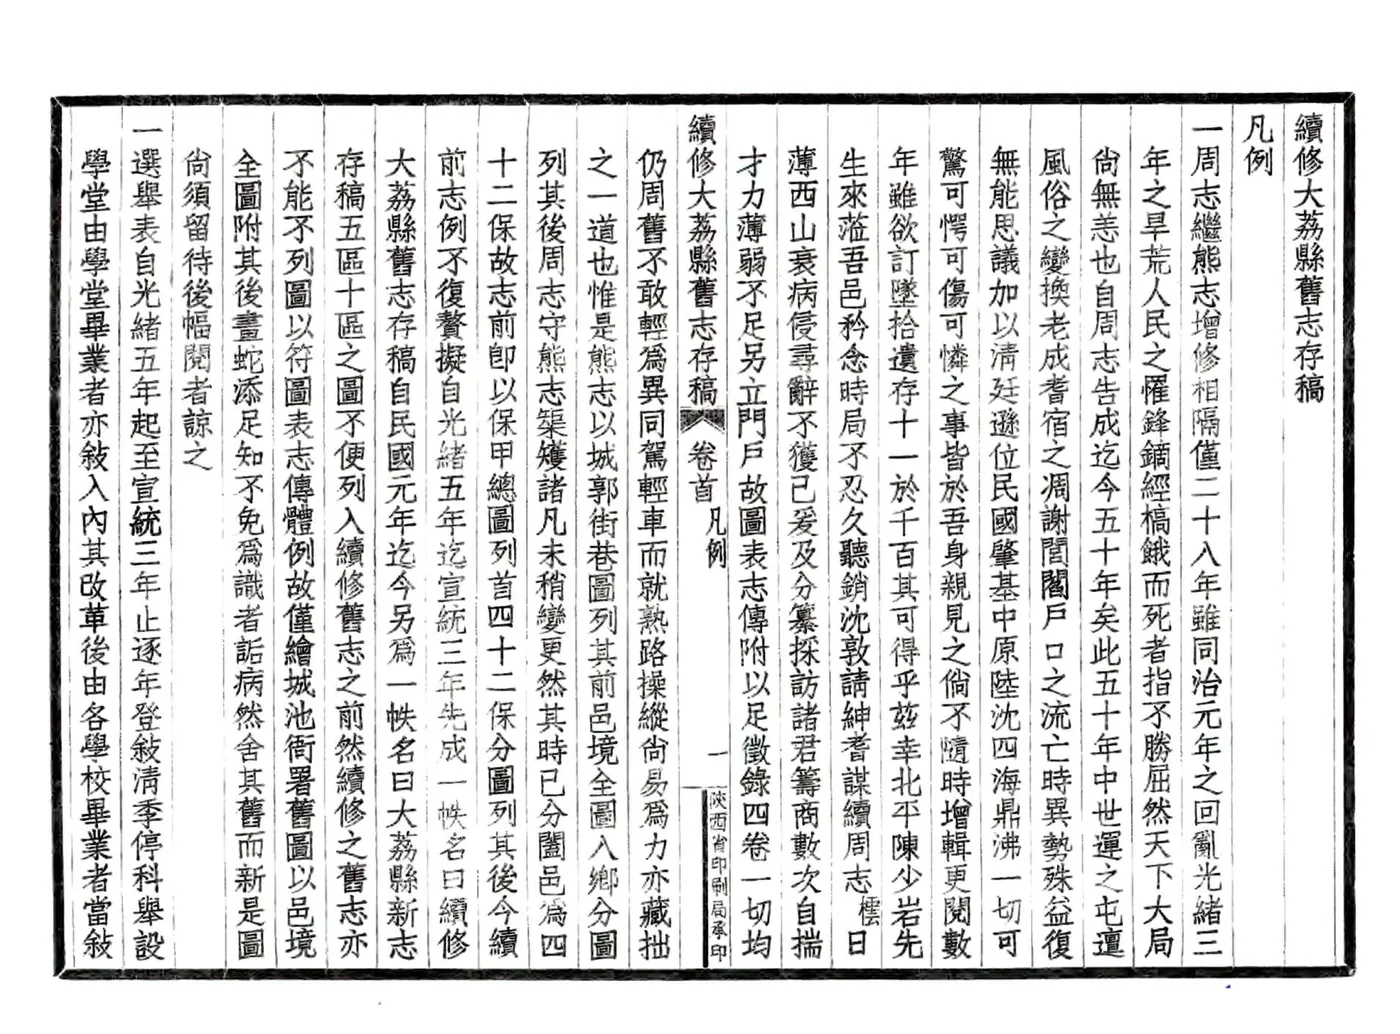 續修大荔縣舊志存稿
凡例
一周志繼熊志增修相隔僅二十八年雖同治元年之回亂光緒三
年之旱荒人民之罹鋒鏑經槁餓而死者指不勝屈然天下大局
尙無恙也自周志告成迄今五十年矣此五十年中世運之屯邅
風俗之變換老成耆宿之凋謝閭閻戶口之流亡時異勢殊益復
無能思議加以淸廷遜位民國肇基中原陸沈四海鼎沸一切可
驚可愕可傷可憐之事皆於吾身親見之倘不隨時增輯更閱數
年雖欲訂墜拾遺存十一於千百其可得乎茲幸北平陳少岩先
生來蒞吾邑矜念時局不忍久聽銷沈敦請紳耆謀續周志橒日
薄西山衰病侵尋辭不獲已爰及分纂採訪諸君籌商數次自揣
才力薄弱不足另立門戶故圖表志傳附以足徵錄四卷一切均
續修大荔縣舊志存稿 卷首 凡例 一 陝西省印刷局承印
仍周舊不敢輕爲異同駕輕車而就熟路操縱尙易爲力亦藏拙
之一道也惟是熊志以城郭街巷圖列其前邑境全圖入鄉分圖
列其後周志守熊志榘矱諸凡未稍變更然其時已分闔邑爲四
十二保故志前卽以保甲總圖列首四十二保分圖列其後今續
前志例不復贅擬自光緒五年迄宣統三年先成一帙名曰續修
大荔縣舊志存稿自民國元年迄今另爲一帙名曰大荔縣新志
存稿五區十區之圖不便列入續修舊志之前然續修之舊志亦
不能不列圖以符圖表志傳體例故僅繪城池衙署舊圖以邑境
全圖附其後畫蛇添足知不免爲識者詬病然舍其舊而新是圖
尙須留待後幅閱者諒之
一選舉表自光緒五年起至宣統三年止逐年登敍淸季停科舉設
學堂由學堂畢業者亦敍入內其改革後由各學校畢業者當敍